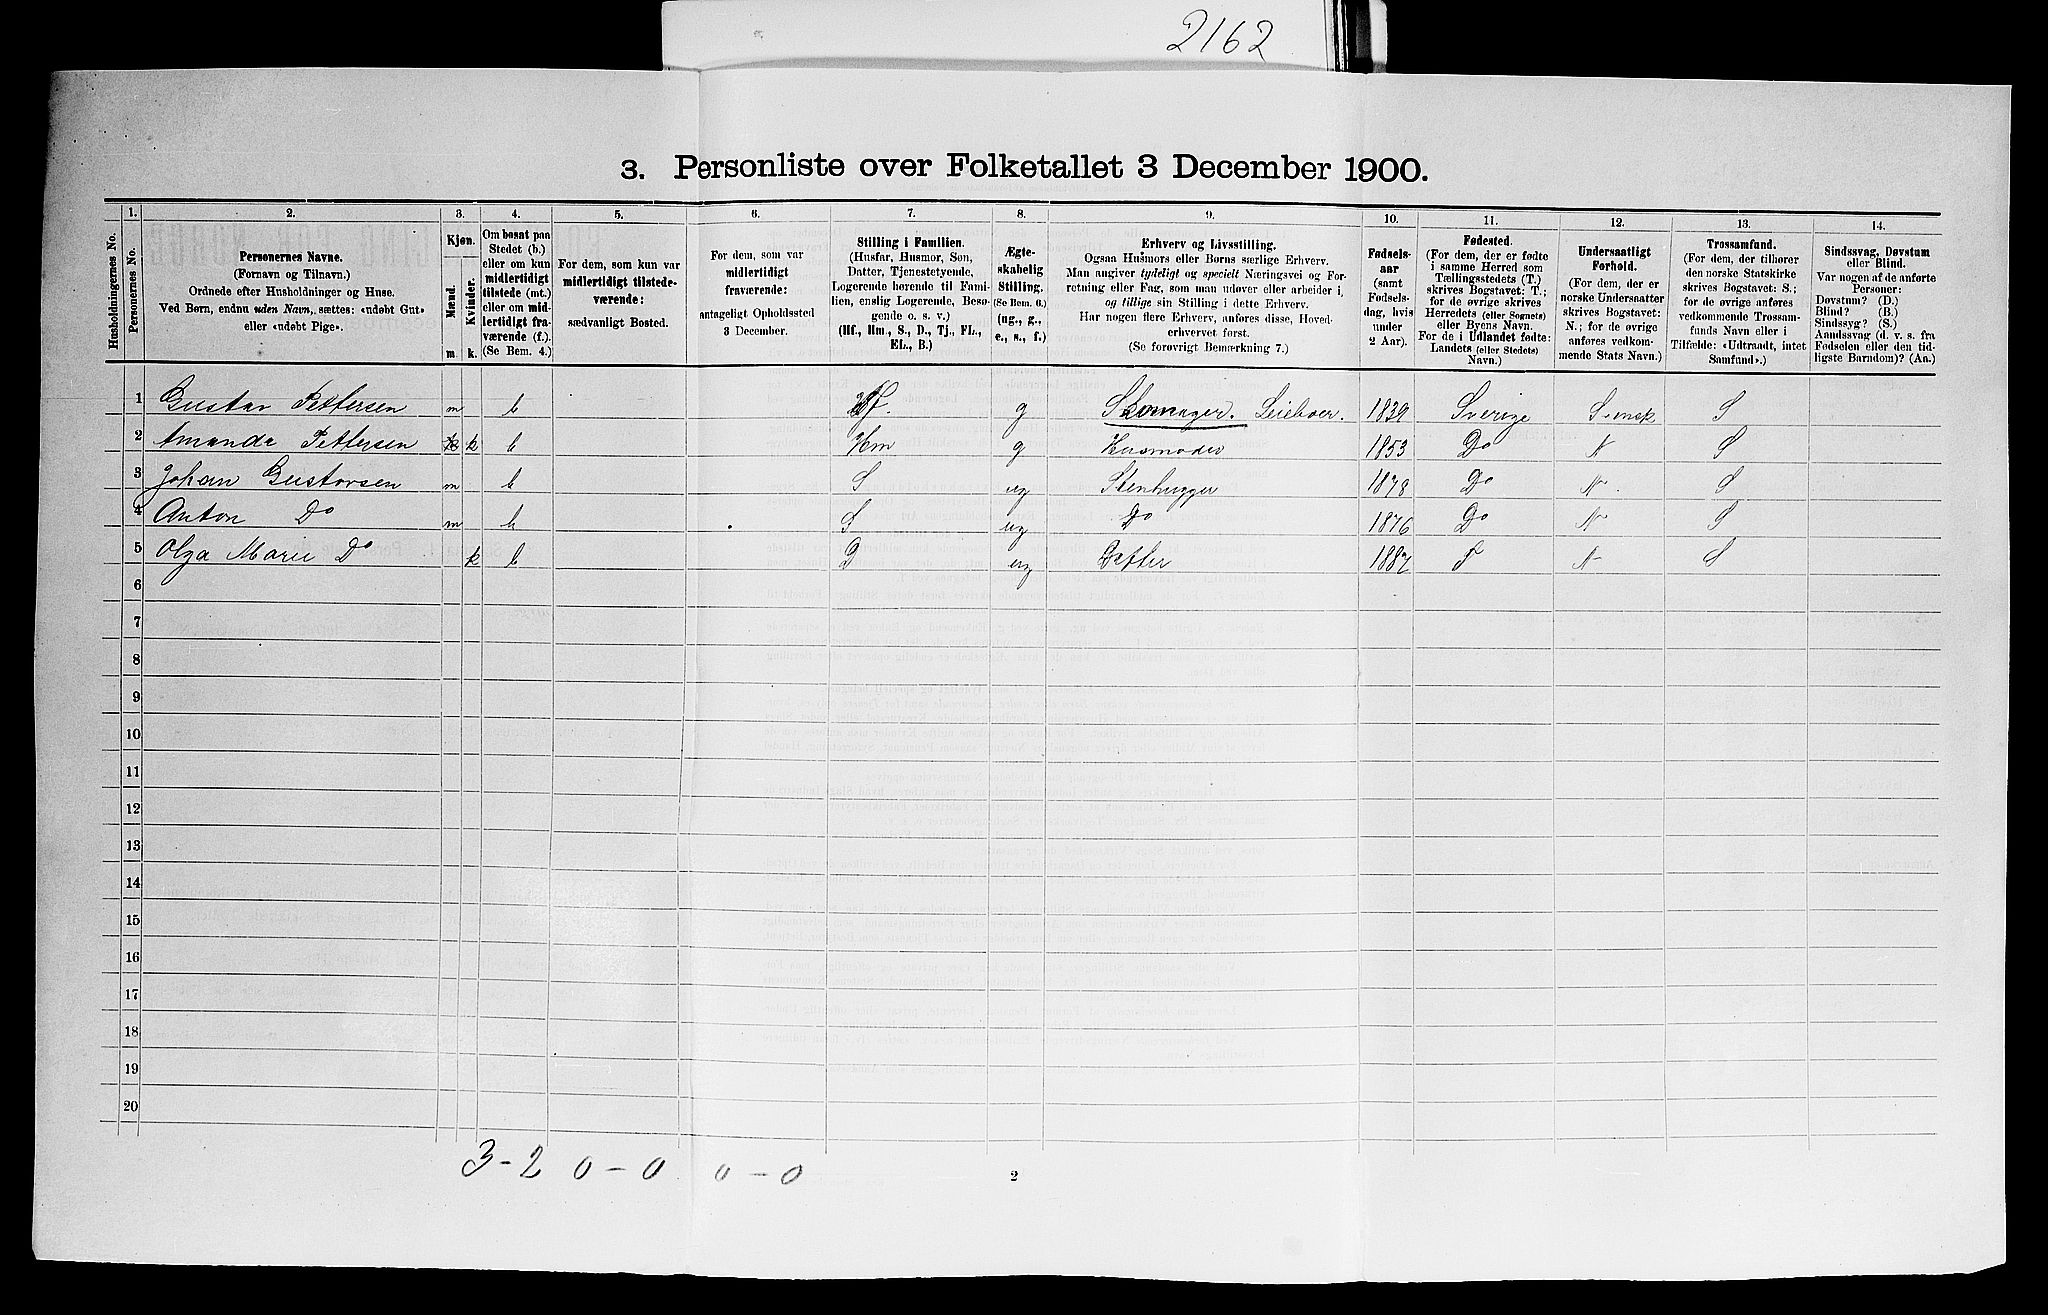 2162
3. Personliste over Folketallet 3 December 1900.
1. 2. 3. 4. 5. 6. 7. 8. 9. 10. 11. 12. 13. 14.
Husholdningernes No.
Personernes No.
Personernes Navne.
(Fornavn og Tilnavn.)
Ordnede efter Husholdninger og Huse.
Ved Børn, endnu uden Navn, sættes: «udøbt Gut»
eller «udøbt Pige».
Kjøn.
Mænd.
Kvinder.
m. k.
Om bosat paa
Stedet (b.)
eller om kun
midlertidigt
tilstede (mt.)
eller om mid-
lertidigt fra-
værende (f.).
(Se Bem. 4.)
For dem, som kun var
midlertidigt tilstede-
værende:
sædvanligt Bosted.
For dem, som var
midlertidigt
fraværende:
antageligt Opholdssted
3 December.
Stilling i Familien.
(Husfar, Husmor, Søn,
Datter, Tjenestetyende,
Logerende hørende til Fami-
lien, enslig Logerende, Besø-
gende o. s. v.)
(Hf., Hm., S., D., Tj., FL.,
EL., B.)
Ægte-
skabelig
Stilling.
(Se Bem. 6.)
(ug., g.,
e., s., f.)
Erhverv og Livsstilling.
Ogsaa Husmors eller Børns særlige Erhverv.
Man angiver tydeligt og specielt Næringsvei og For-
retning eller Fag, som man udøver eller arbeider i,
og tillige sin Stilling i dette Erhverv.
Har nogen flere Erhverv, anføres disse, Hoved-
erhvervet først.
(Se forøvrigt Bemærkning 7.)
Fødsels-
aar
(samt
Fødsels-
dag, hvis
under
2 Aar).
Fødested.
(For dem, der er fødte
i samme Herred som
Tællingsstedets (T.)
skrives Bogstavet: T.;
for de øvrige skrives
Herredets (eller Sognets)
eller Byens Navn.
For de i Udlandet fødte:
Landets (eller Stedets)
Navn.)
Undersaatligt
Forhold.
(For dem, der er
norske Undersaatter
skrives Bogstavet:
N.; for de øvrige
anføres vedkom-
mende Stats Navn.)
Trossamfund.
(For dem, der tilhører
den norske Statskirke
skrives Bogstavet: S.;
for de øvrige anføres
vedkommende Trossam-
funds Navn eller i
Tilfælde: «Udtraadt, intet
Samfund».)
Sindssvag, Døvstum
eller Blind.
Var nogen af de anførte
Personer:
Døvstum? (D.)
Blind? (B.)
Sindssyg? (S.)
Aandssvag (d. v. s. fra
Fødselen eller den tid-
ligste Barndom)? (Aa.)
1 Gustav Pettersen m b Hf. g Skomager. Leieboer. 1839 Sverige Svensk S
2 Amanda Pettersen k b Hm g Husmoder 1853 Do N S
3 Johan Gustavsen m b S ug Stenhugger 1878 Do N. S
4 Anton Do m b S ug Do 1876 Do N S
5 Olga Marie Do k b D ug Datter 1882 T N S
6
7
8
9
10
11
12
13
14
15
16
17
18
19
20
3-2 0-0 0-0
2